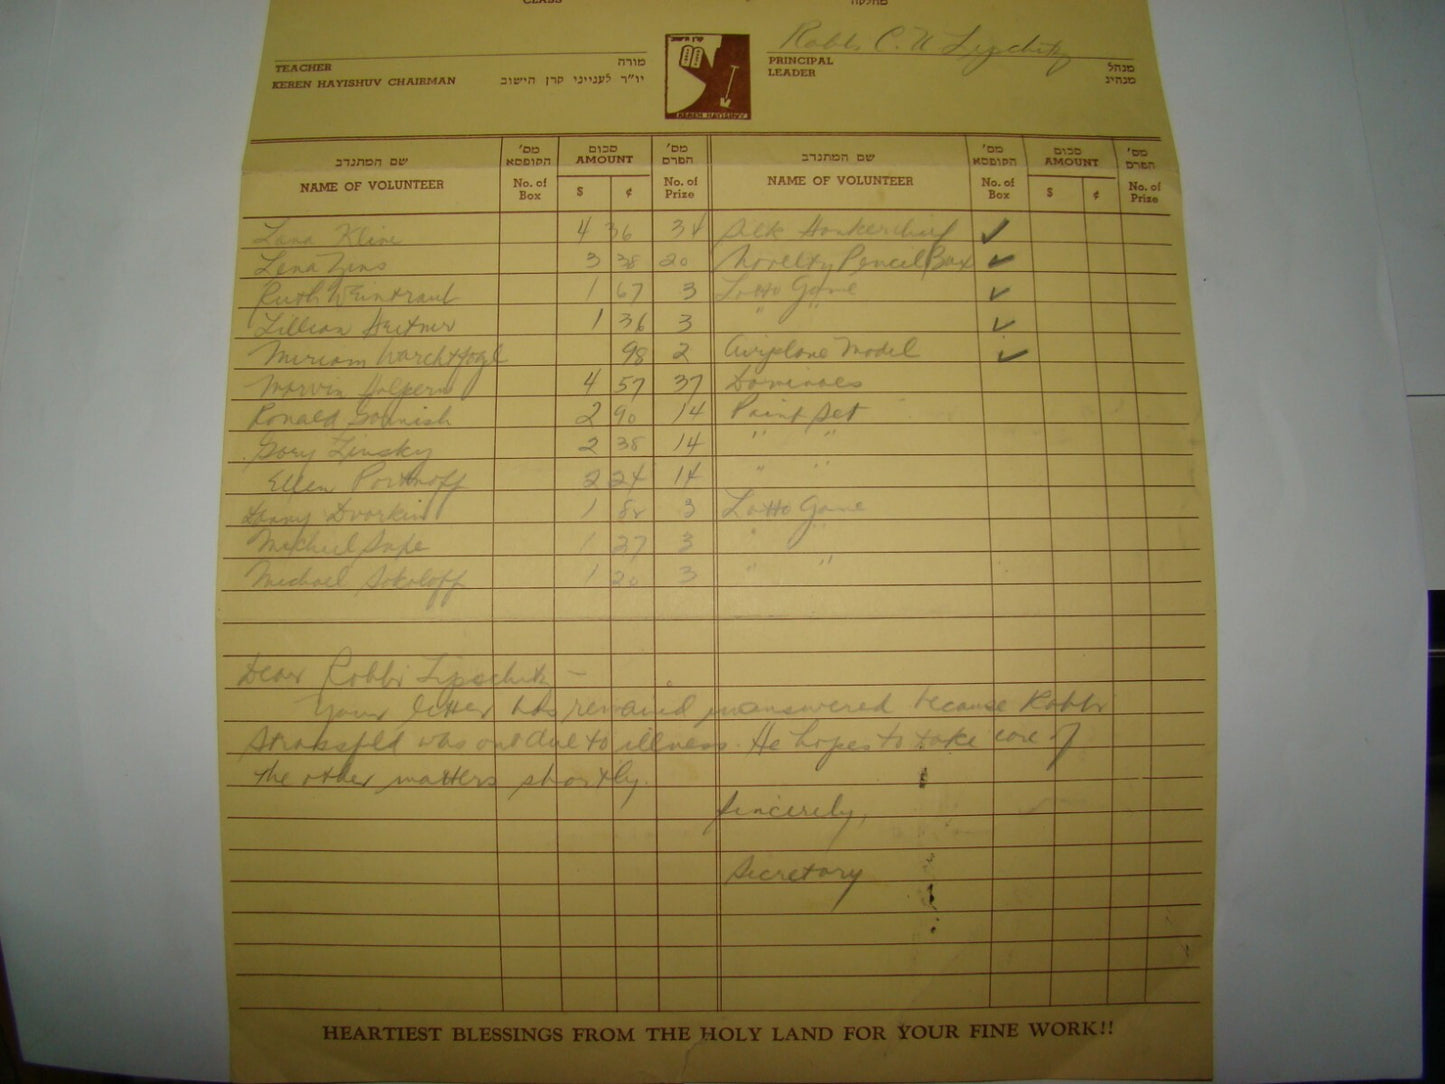 CLASS מחלקה
Rabbi C. U. Lipschitz
TEACHER מורה PRINCIPAL מנהל
KEREN HAYISHUV CHAIRMAN יו"ר לענייני קרן הישוב LEADER מנהיג
קרן הישוב
KEREN HAYISHUV
שם המתנדב מס' הקופסא סכום מס' הפרס שם המתנדב מס' הקופסא סכום מס' הפרס
NAME OF VOLUNTEER No. of Box AMOUNT $ ¢ No. of Prize NAME OF VOLUNTEER No. of Box AMOUNT $ ¢ No. of Prize
Lana Kline 4 36 34 Silk Hankerchief ✓
Lena Zens 3 38 20 Novelty Pencil Box ✓
Ruth Weintraub 1 67 3 Lotto Game ✓
Lillian Heitner 1 36 3 " " ✓
Miriam Wachtfogl 98 2 Airplane Model ✓
Marvin Halpern 4 57 37 Dominoes
Ronald Gornish 2 90 14 Paint Set
Gary Linsky 2 38 14 " "
Ellen Portnoff 2 24 14 " "
Danny Dvorkin 1 82 3 Lotto Game
Michael 1 27 3 " "
Michael Sokoloff 1 20 3 " "
Dear Rabbi Lipschitz –
Your letter has remained unanswered because Rabbi
was out due to illness. He hopes to take care of
the other matters shortly.
Sincerely,
Secretary
HEARTIEST BLESSINGS FROM THE HOLY LAND FOR YOUR FINE WORK!!